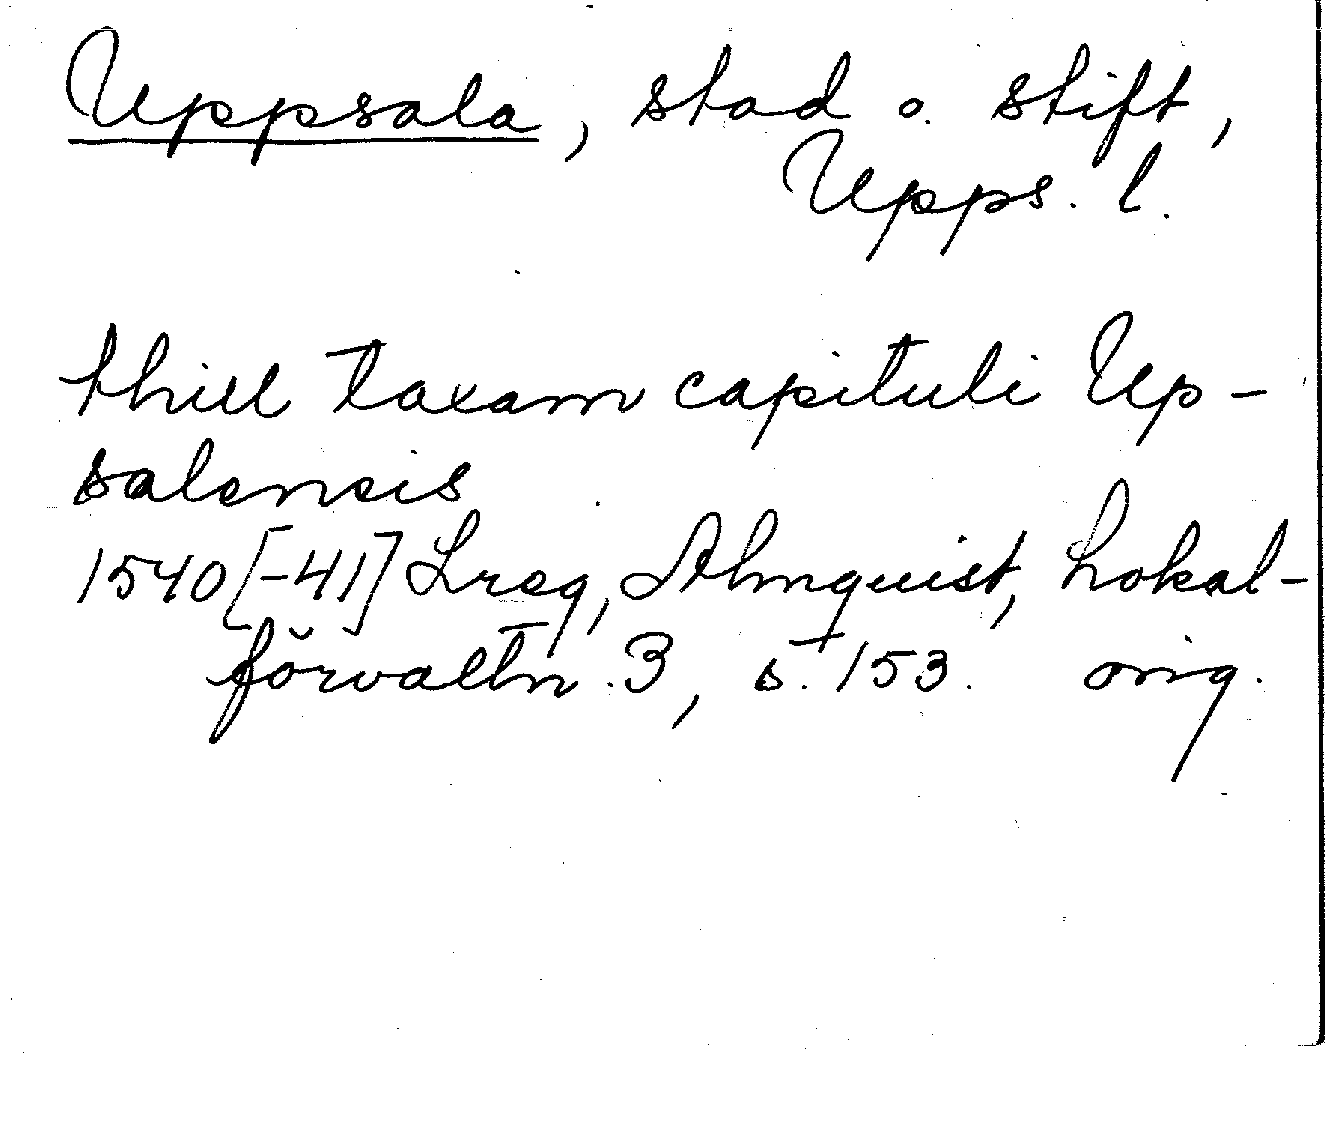 Uppsala, stad o. stift,
Upps. l.
thill taxam capituli Up-
salensis
1540[-41] Lreg, Almquist, Lokal-
förvaltn. 3, s. 153. orig.